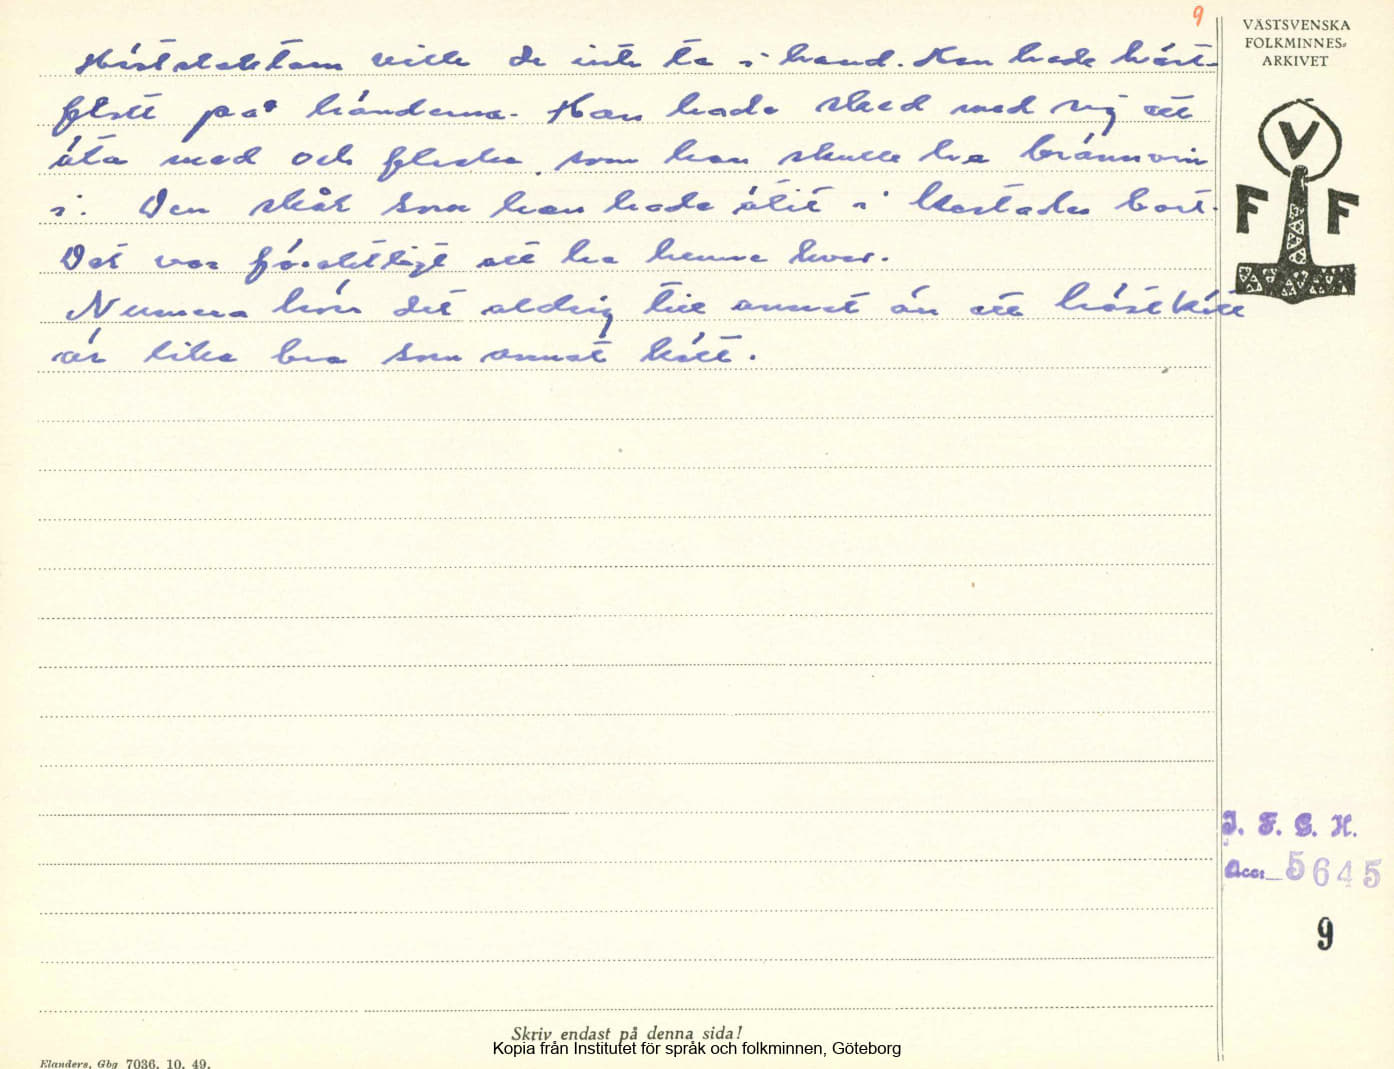 9
VÄSTSVENSKA
FOLKMINNES-
ARKIVET
Hästslaktam ville de inte ta i hand. Han hade häst-
flott på händerna. Han hade sked med sig att
äta med och flaska som han skulle ha brännvin
i. Den skål som han hade ätit i kastades bort.
Det var förskräckligt att ha henne kvar.
Numera hör det aldrig till annat än att hästkött
är lika bra som annat kött.
V
F F
I. F. G. H.
Acc. 5645
9
Skriv endast på denna sida!
Kopia från Institutet för språk och folkminnen, Göteborg
Elanders, Gbg 7036. 10. 49.